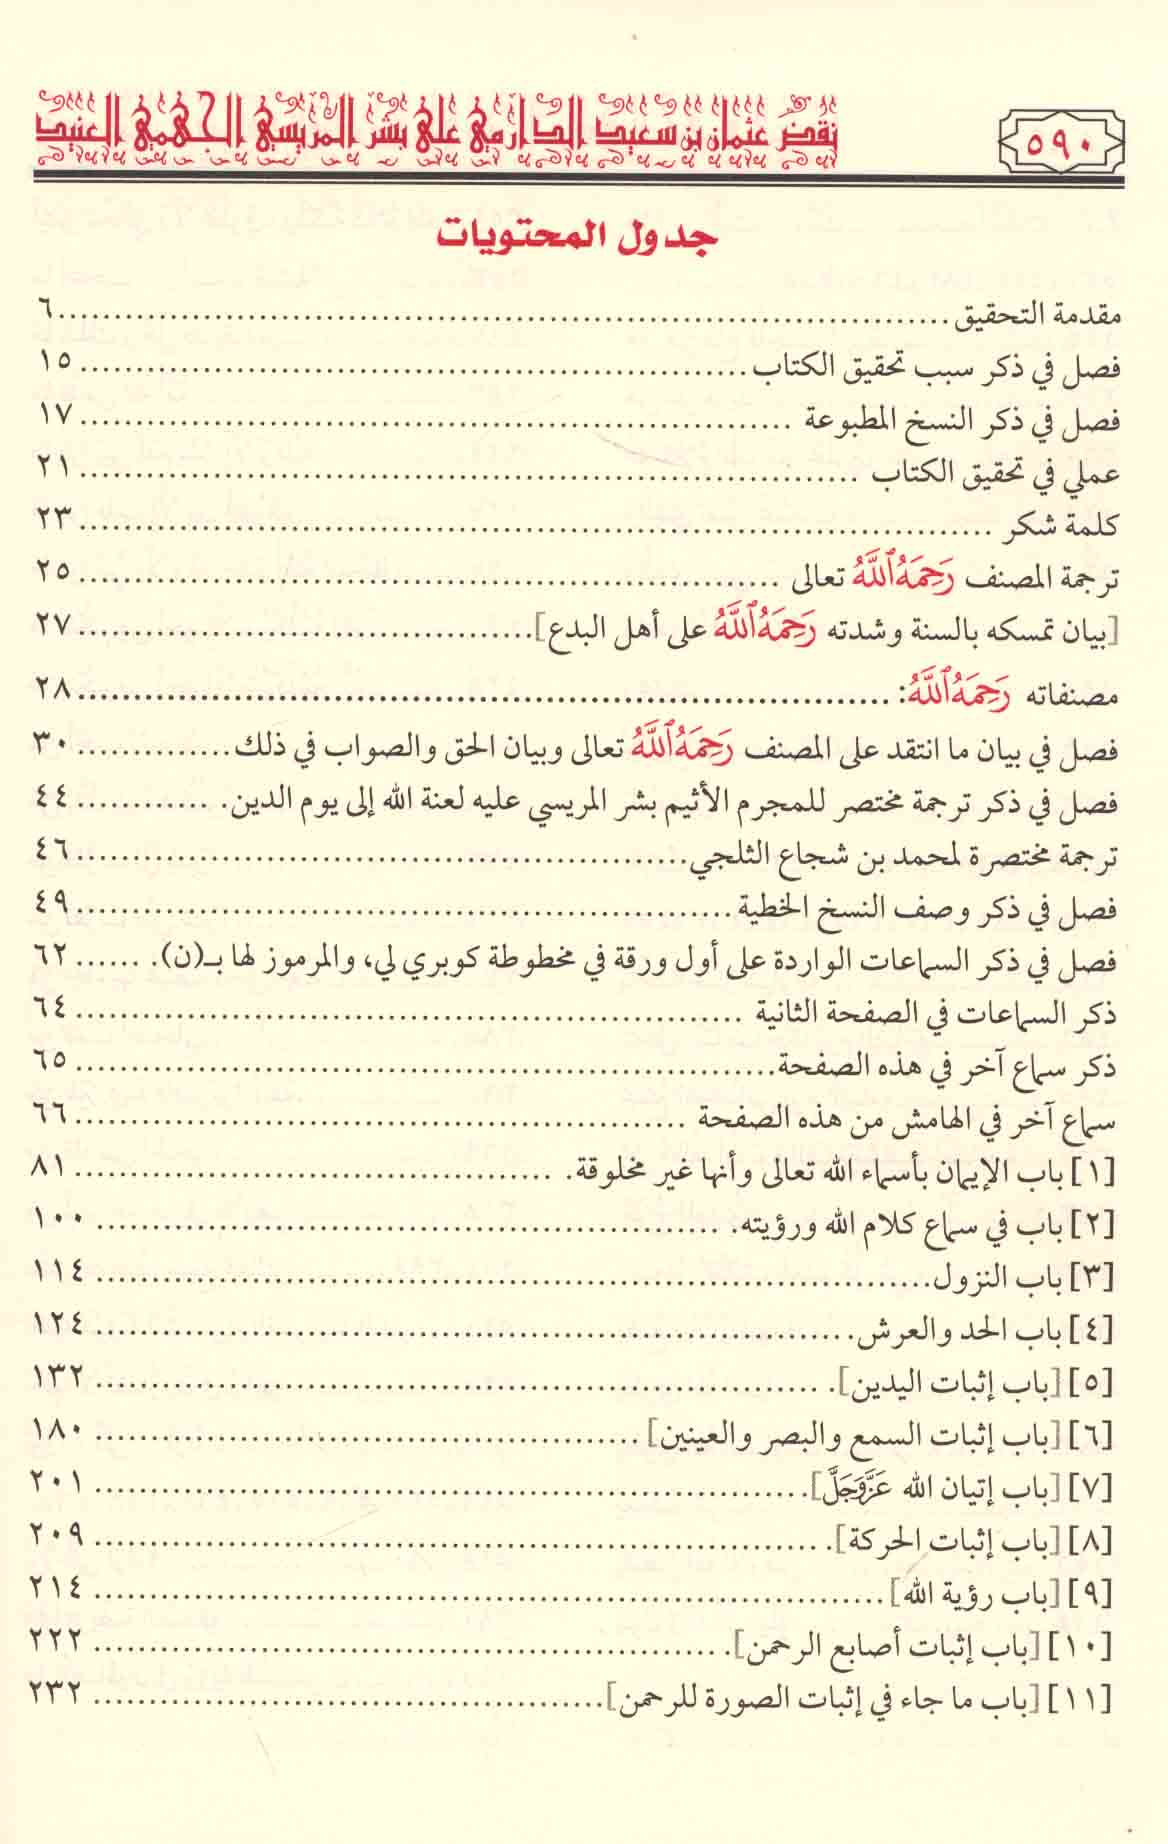 نقض عثمان بن سعيد الدارمي على بشر المريسي الجهمي العنيد
٥٩٠
جدول المحتويات
مقدمة التحقيق ................ ٦
فصل في ذكر سبب تحقيق الكتاب ................ ١٥
فصل في ذكر النسخ المطبوعة ................ ١٧
عملي في تحقيق الكتاب ................ ٢١
كلمة شكر ................ ٢٣
ترجمة المصنف رَحِمَهُ ٱللَّهُ تعالى ................ ٢٥
[بيان تمسكه بالسنة وشدته رَحِمَهُ ٱللَّهُ على أهل البدع] ................ ٢٧
مصنفاته رَحِمَهُ ٱللَّهُ: ................ ٢٨
فصل في بيان ما انتقد على المصنف رَحِمَهُ ٱللَّهُ تعالى وبيان الحق والصواب في ذلك ................ ٣٠
فصل في ذكر ترجمة مختصر للمجرم الأثيم بشر المريسي عليه لعنة الله إلى يوم الدين. ................ ٤٤
ترجمة مختصرة لمحمد بن شجاع الثلجي ................ ٤٦
فصل في ذكر وصف النسخ الخطية ................ ٤٩
فصل في ذكر السماعات الواردة على أول ورقة في مخطوطة كوبري لي، والمرموز لها بـ(ن). ...... ٦٢
ذكر السماعات في الصفحة الثانية ................ ٦٤
ذكر سماع آخر في هذه الصفحة ................ ٦٥
سماع آخر في الهامش من هذه الصفحة ................ ٦٦
[١] باب الإيمان بأسماء الله تعالى وأنها غير مخلوقة. ................ ٨١
[٢] باب في سماع كلام الله ورؤيته. ................ ١٠٠
[٣] باب النزول ................ ١١٤
[٤] باب الحد والعرش ................ ١٢٤
[٥] [باب إثبات اليدين]. ................ ١٣٢
[٦] [باب إثبات السمع والبصر والعينين] ................ ١٨٠
[٧] [باب إتيان الله عَزَّوَجَلَّ] ................ ٢٠١
[٨] [باب إثبات الحركة]. ................ ٢٠٩
[٩] [باب رؤية الله] ................ ٢١٤
[١٠] [باب إثبات أصابع الرحمن]. ................ ٢٢٢
[١١] [باب ما جاء في إثبات الصورة للرحمن] ................ ٢٣٢